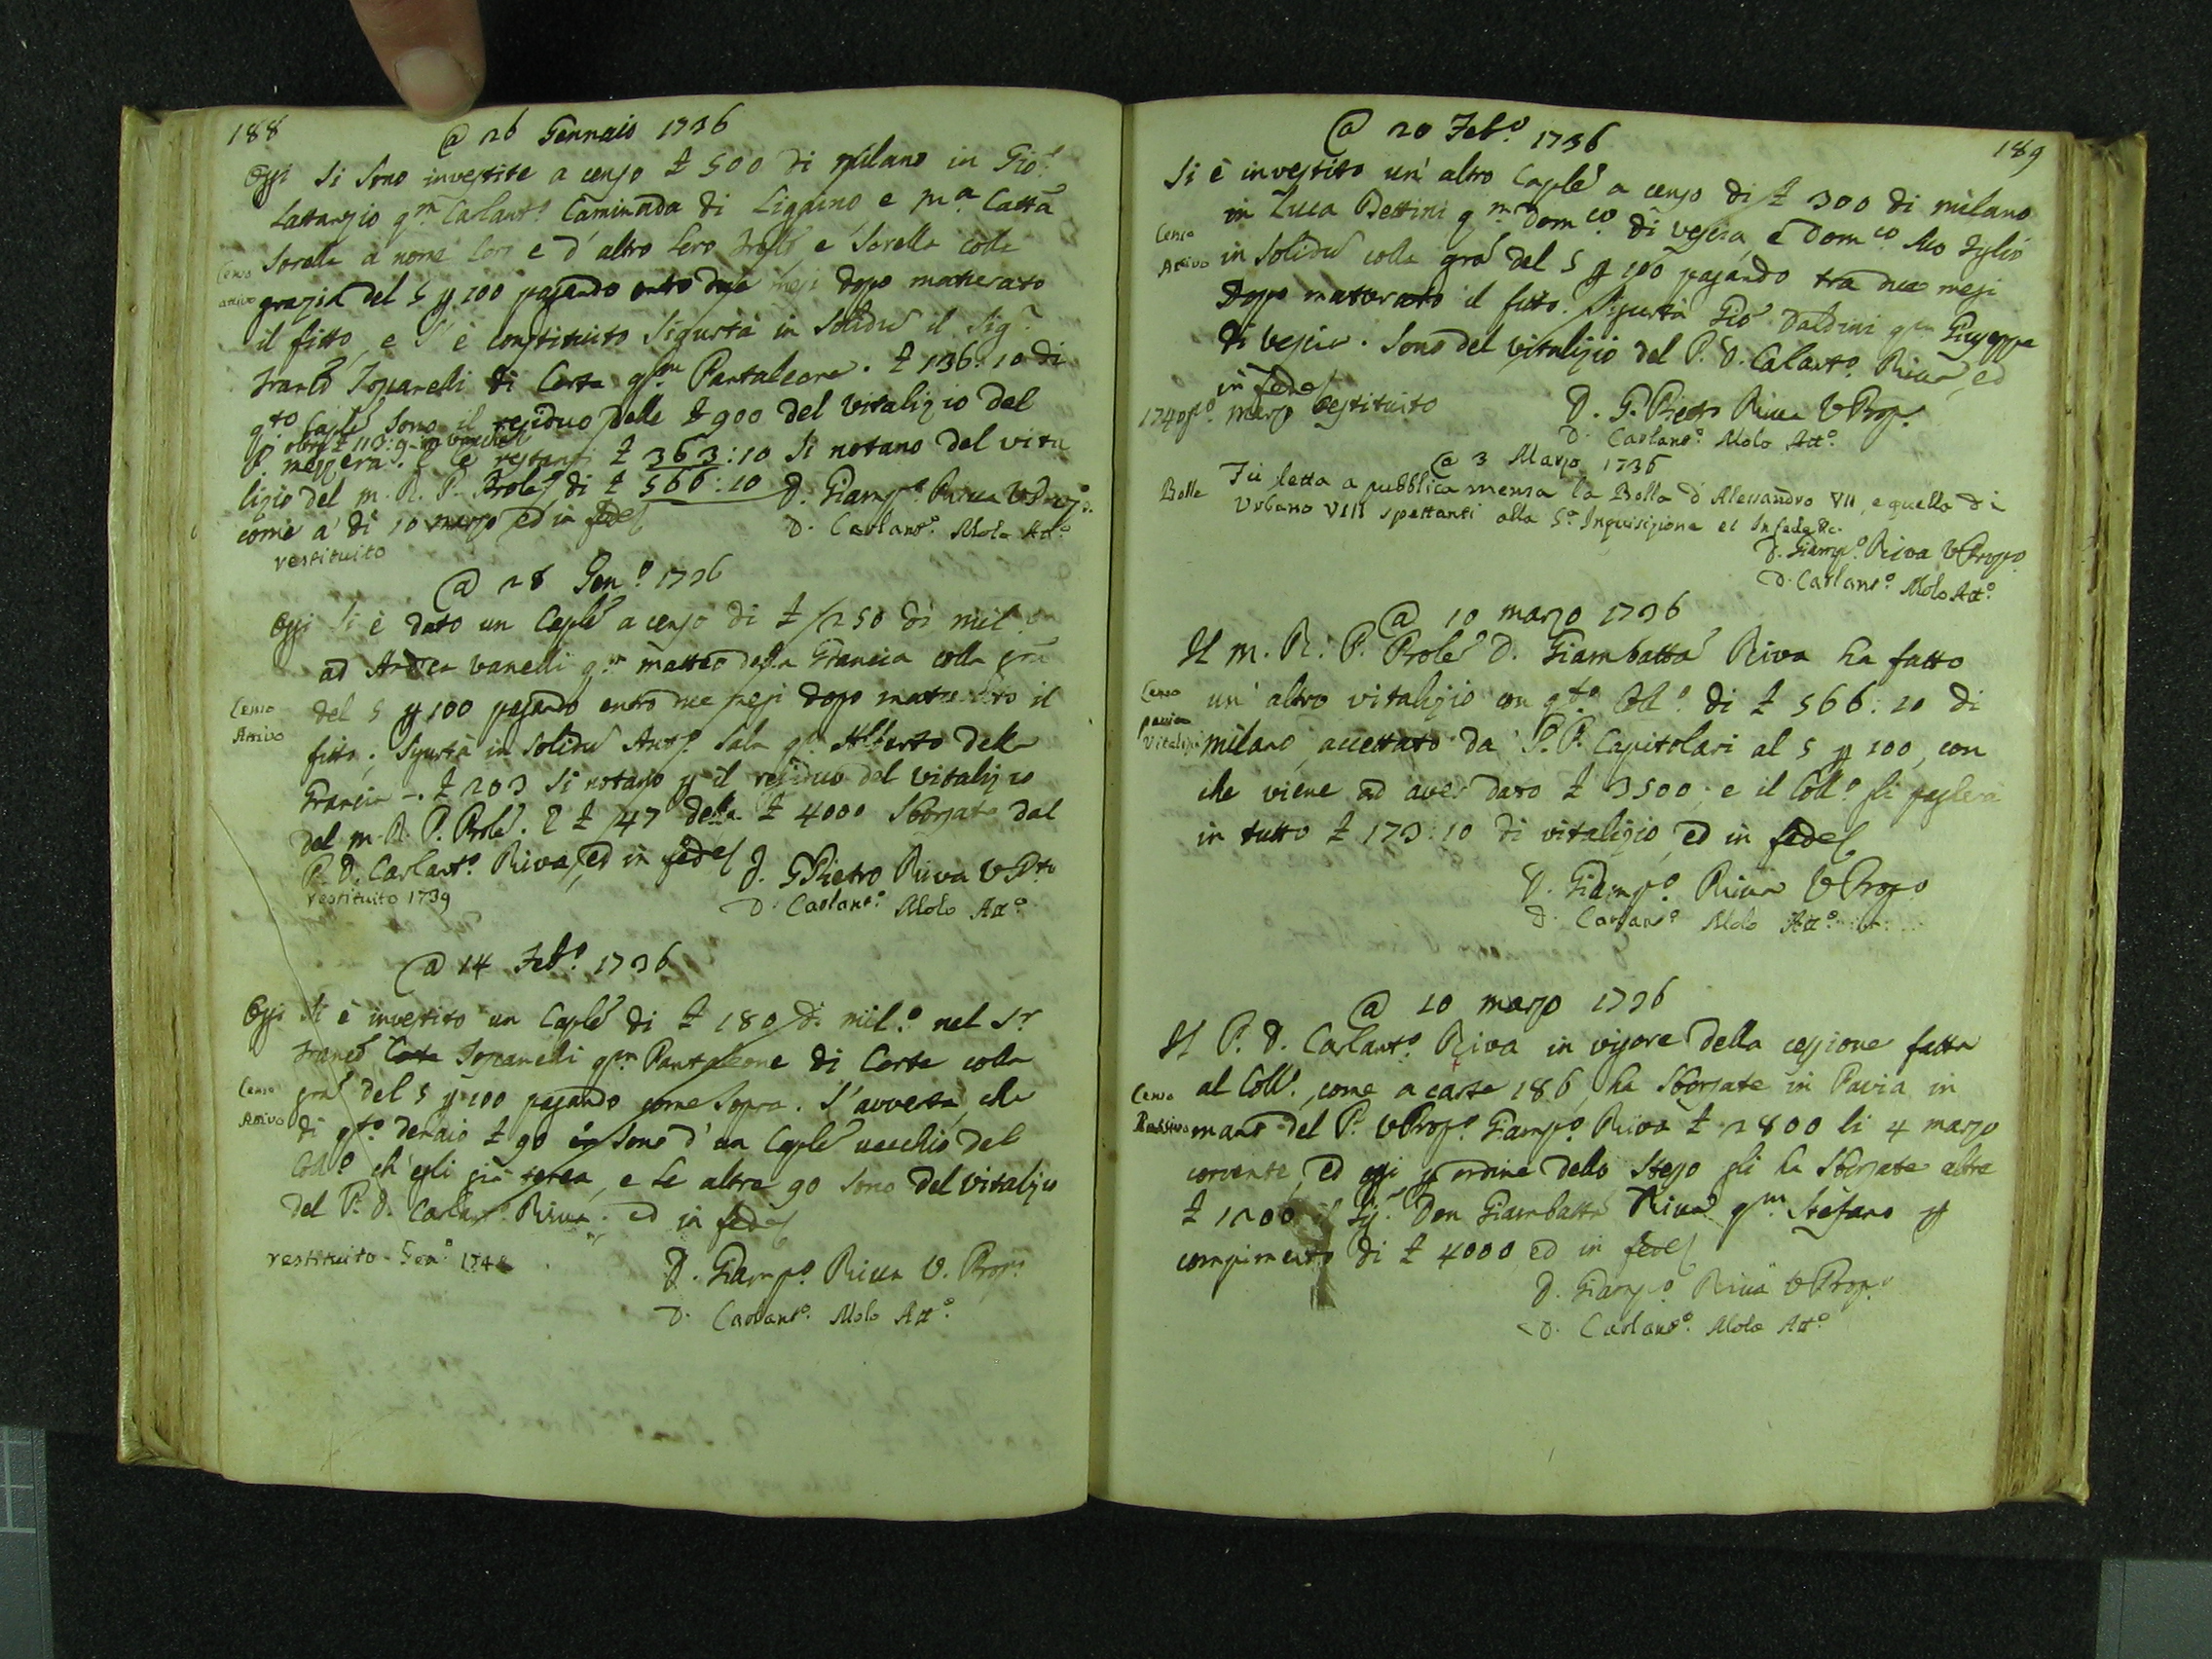 188
@ 26 Gennaio 1736
Oggi si sono investite a censo £ 500 di milano in Gio:
Lattanzio qm Carlant.o Caminada di Ligaino e ma Catta
sorella a nome loro e d'altro loro e sorella colla
Censo attivo
grazia del 5 p 100 pagando entro due mesi dopo matterato
il fitto, e s'è constituito Sigurtà in solidu il Sig.r
Franc.o Foscarelli di Corte qm Pantaleone. £ 136:10 di
q.to Caple sono il residuo delle £ 900 del vitalizio del
P. Nessera. e le restanti £ 363:10 si notano del vita
lizio del m. R. P. Prole di £ 566:10
come a di 10 marzo ed in fede
D. Giamp.o Riva V Prop.o
D. Carlant.o Molo Att.o
restituito
@ 28 Gen.o 1736
Oggi si è dato un Caple a censo di £ 250 di mil.
ad Andrea Vanelli qm matteo della Grancia colla gra
Censo Attivo
del 5 p 100 pagando entro due mesi dopo maturato il
fitto; Sigurtà in solidu Ant.o Sala qm Alberto della
Grancia. £ 203 si notano p il residuo del vitalizio
del m. R. P. Prole. E £ 47 della £ 4000 sborsate dal
P. D. Carlant.o Riva, ed in fede
D. GPietro Riva V P.to
D. Carlant.o Molo Att.o
restituito 1739
@ 14 Feb.o 1736
Oggi si è investito un Caple di £ 180 di mil.o nel Sr
Franc.o Corte Foscarelli qm Pantaleone di Corte colla
Censo Attivo
gra del 5 p 100 pagando come sopra. S'avverta, che
di q.to denaio £ 90 sono d'un Caple vecchio del
Coll.o ch'egli già tenea, e le altre 90 sono del vitalizio
del P. D. Carlant.o Riva. ed in fede
restituito - Gen.o
D. Giamp.o Riva V. Prop.o
D. Carlant.o Molo Att.o
189
@ 20 Feb.o 1736
Si è investito un'altro Caple a censo di £ 300 di milano
in Luca Bettini qm Dom.co di Vescia, e Dom.co suo figlio
Censo Attivo
in solidu colla gra del 5 p 100 pagando tra due mesi
dopo matterato il fitto. Sigurtà Gio Daldini qm Giuseppe
di Vescia. Sono del vitalizio del P. D. Calant.o Riva, ed
in fede
1740 p.o marzo restituito
D. G. Pietro Riva V Prop.
D. Carlant.o Molo Att.o
@ 3 Marzo 1736
Bolle
Fù letta a pubblica mensa la Bolla d'Alessandro VII, e quella di
Urbano VIII spettanti alla S.a Inquisizione et In fede &c.
D. Giamp.o Riva V Propo
D. Carlant.o Molo Att.o
@ 10 marzo 1736
Il m. R. P. Prole D. Giambatta Riva ha fatto
Censo passivo Vitalizi
un'altro vitalizio con q.to Coll.o di £ 566:10 di
milano, accettato da P. P. Capitolari al 5 p 100, con
che viene ad aver dato £ 3500; e il Coll.o gli pagherà
in tutto £ 173:10 di vitalizio, ed in fede
D. Giamp.o Riva V Prop.o
D. Carlant.o Molo Att.o
@ 10 marzo 1736
Il P. D. Carlant.o Riva in vigore della cessione fatta
Censo Passivo
al Coll., come a carte 186, ha sborsate in Pavia in
mano del P. V Prop.o Giamp.o Riva £ 2800 li 4 marzo
corrente, ed oggi p ordine dello stesso gli ha sborsate altre
£ 1200 il Sig. Don Giambatta Riva qm Stefano p
compimento di £ 4000, ed in fede
D. Giamp.o Riva V Prop.o
D. Carlant.o Molo Att.o